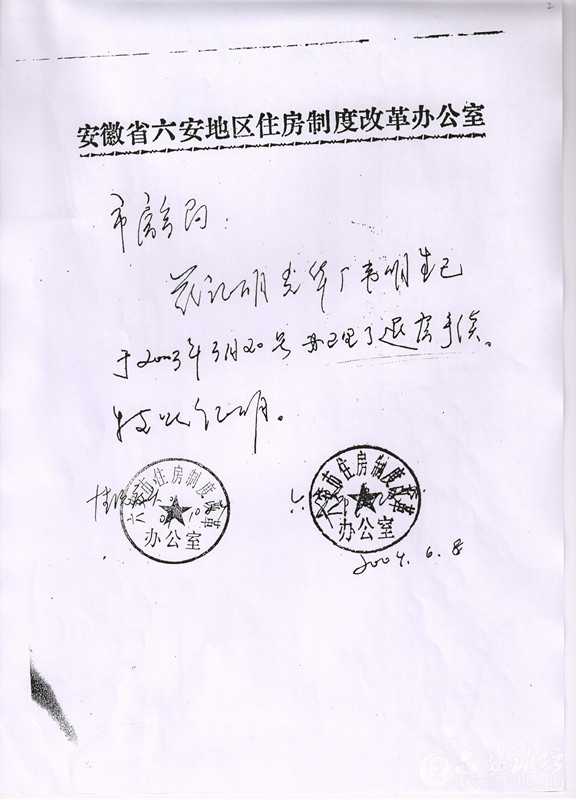 2
安徽省六安地区住房制度改革办公室
市房产局:
兹证明光华厂韦明生已
于2003年3月20号办理了退房手续。
特此证明。
六安市住房制度改革
办公室
六安市住房制度改革
办公室
2004.6.8